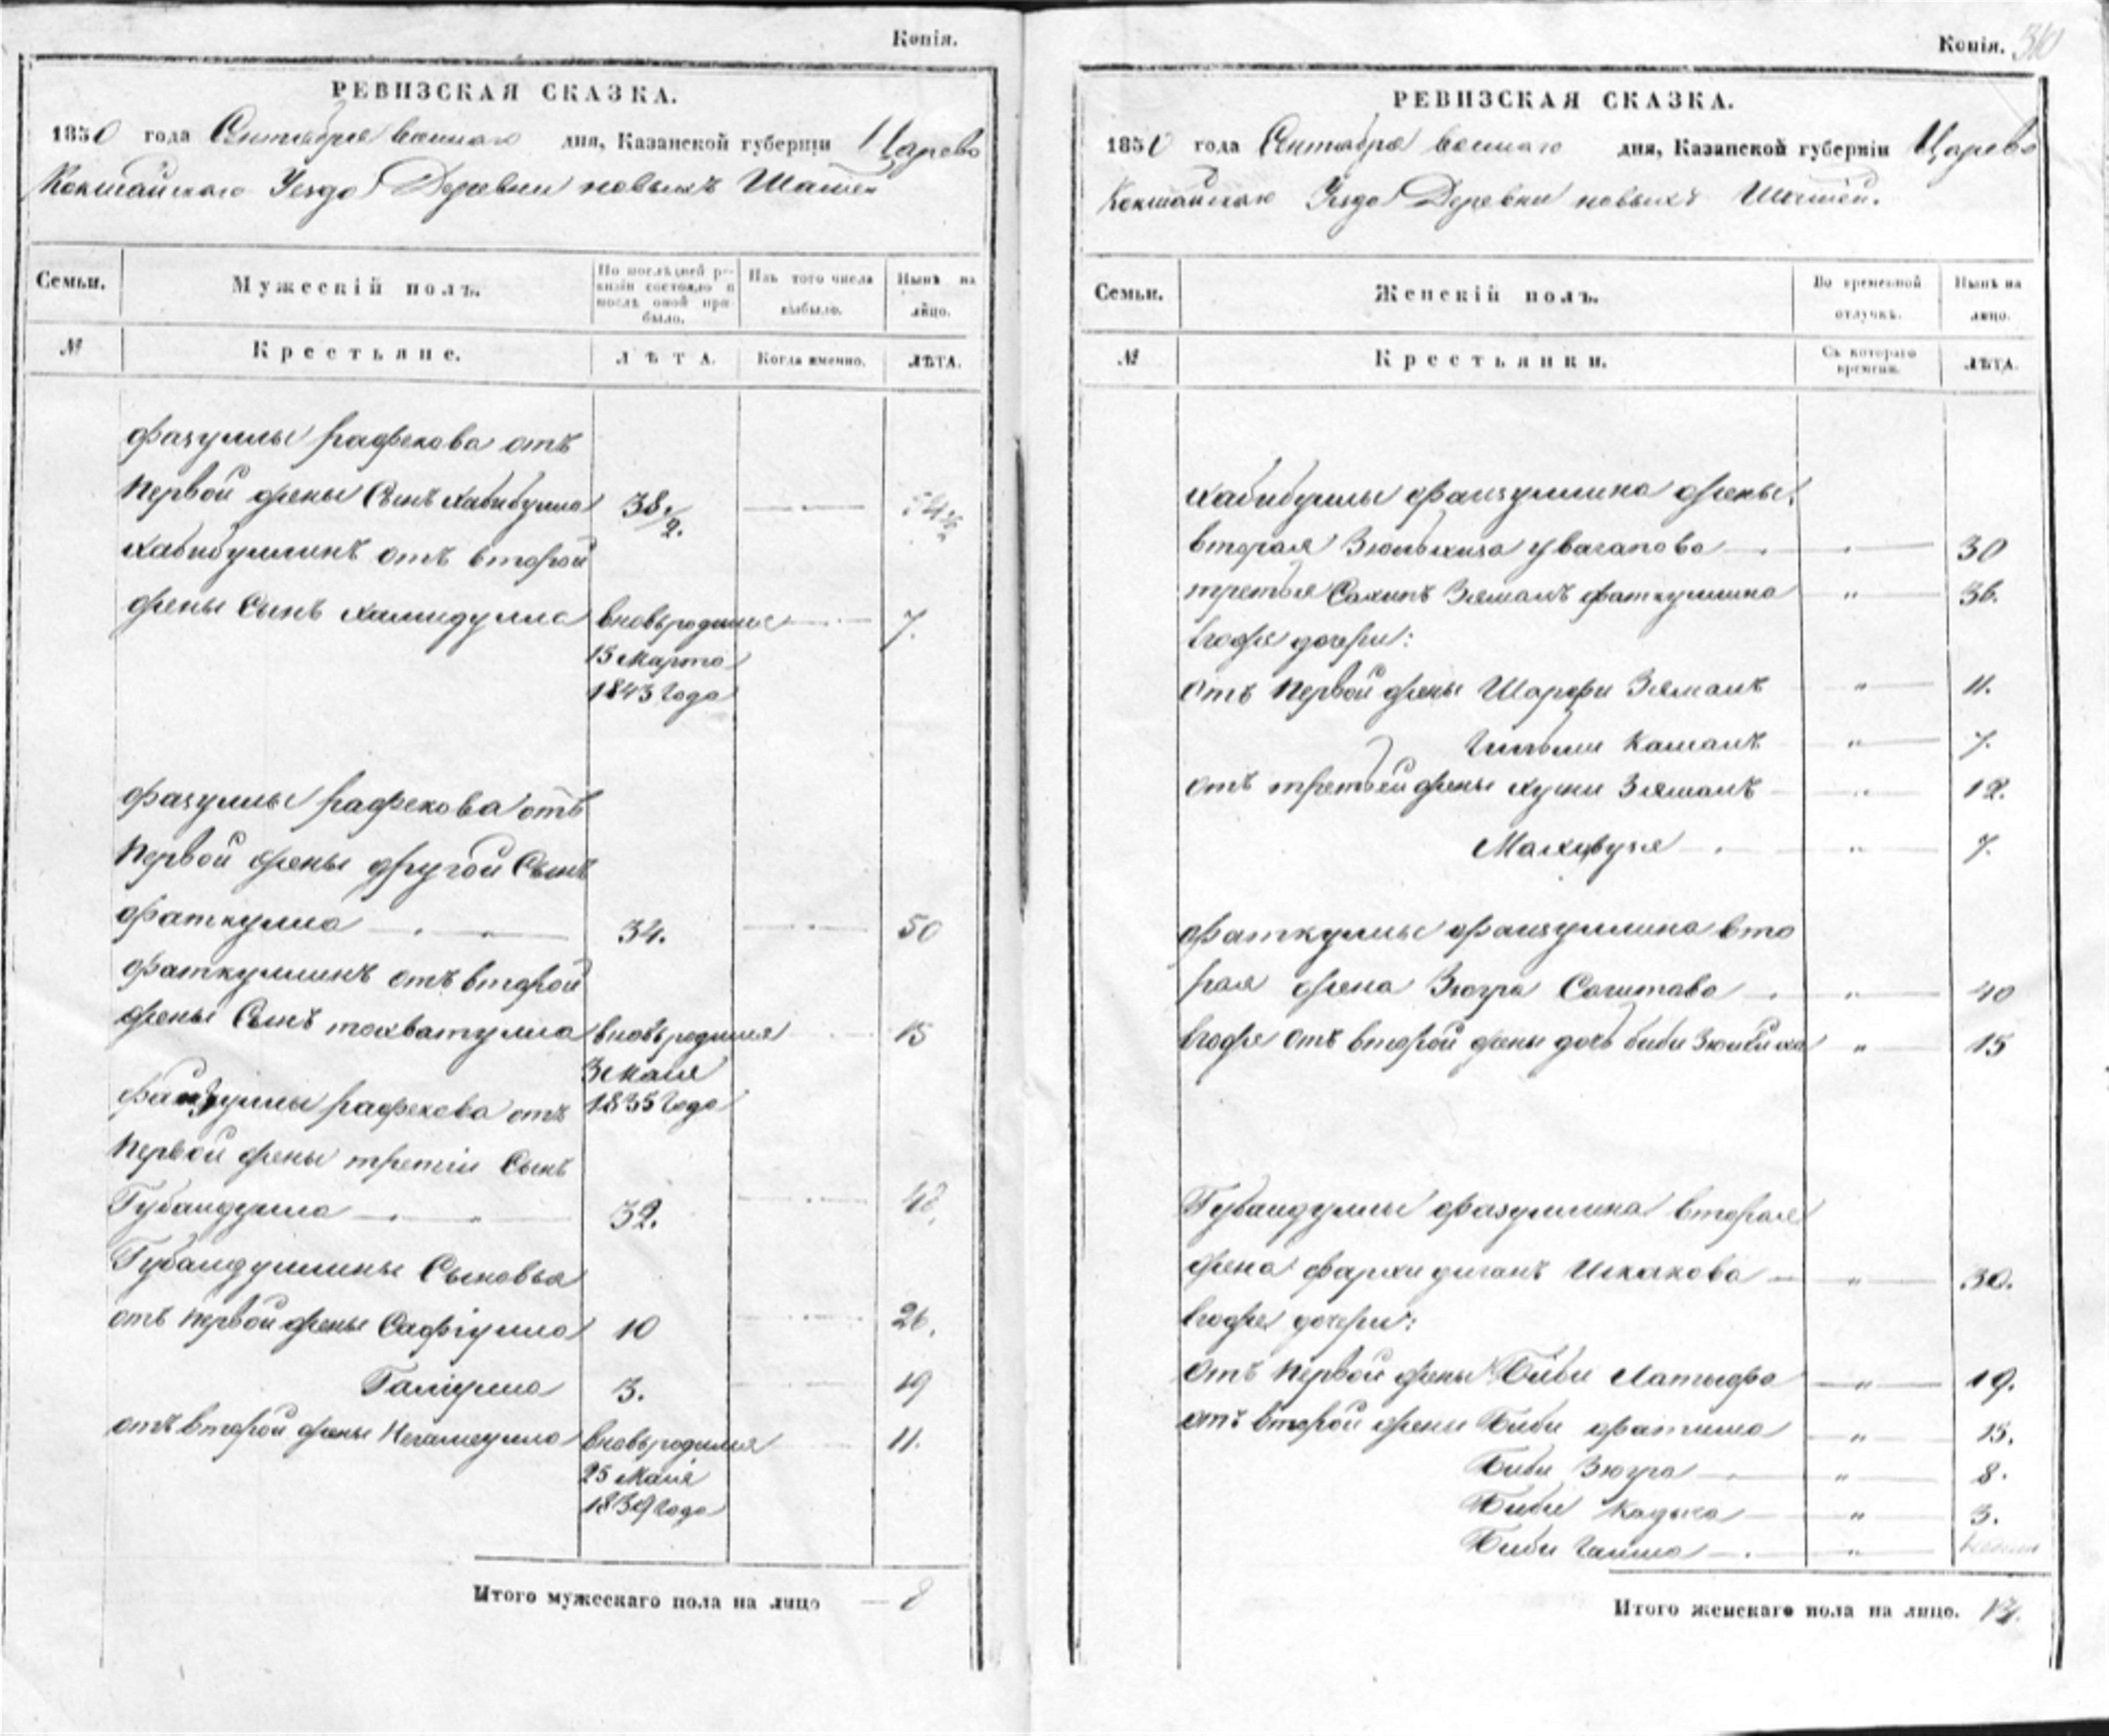 Копія.
РЕВИЗСКАЯ СКАЗКА.
1850 года Сентября восмаго дня, Казанской губерніи Царево
Кокшайскаго Уезда Деревни новыхъ Шашей
Семьи.
Мужескій полъ.
По послѣдней ре-
визіи состояло и
послѣ оной при-
было.
Изъ того числа
выбыло.
Нынѣ на
лицо.
№
Крестьяне.
ЛѢТА.
Когда именно.
ЛѢТА.
фазуллы рафекова отъ
первой жены Сынъ хабибулла 38 1/2.
хабибуллинъ отъ второй
жены Сынъ хамидулла вновьродился 7.
15 Марта
1843 года
фазуллы рафекова отъ
первой жены другой Сынъ
фаткулла 34. 50
фаткуллинъ отъ второй
жены Сынъ тохватулла вновьродился 15
3 Маія
1835 года
фейзуллы рафекова отъ
первой жены третіи Сынъ
Губайдулла 32. 48.
Губайдуллины Сыновья
отъ первой жены Сафіулла 10 26.
Галіулла 3. 19
отъ второй жены Негаметулла вновьродился 11.
25 Маія
1839 года
Итого мужескаго пола на лицо — 8
Копія. 310
РЕВИЗСКАЯ СКАЗКА.
1850 года Сентября восмаго дня, Казанской губерніи Царево
Кокшайскаго Уезда Деревни новыхъ Шашей.
Семьи.
Женскій полъ.
Во временной
отлучкѣ.
Нынѣ на
лицо.
№
Крестьянки.
Съ котораго
времени.
ЛѢТА.
хабибуллы файзуллина жены:
вторая Зюльхиза увагапова " 30
третья Сахипъ Зямалъ фаткуллина " 36.
Ево же дочери:
отъ первой жены Шарифи Зямалъ " 11.
Гильми Камалъ " 7.
отъ третьей жены хусни Зямалъ " 12.
Махивузя " 7.
фаткуллы файзуллина вто
рая жена Зюгра Сагитова " 40
Ево же отъ второй жены дочь биби Зюлбиха " 15
Губайдуллы фазуллина вторая
жена фархи диганъ Искакова " 30.
Ево же дочери:
отъ первой жены Биби Латыфа " 19.
отъ второй жены Биби фатима " 15.
Биби Зюгра " 8.
Биби Кадыча " 3.
Биби Гайша "
Итого женскаго пола на лицо. 14.